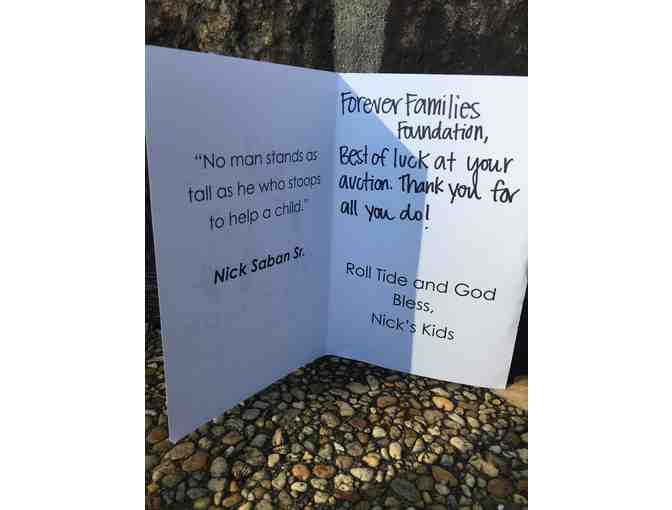 "No man stands as
tall as he who stoops
to help a child."
Nick Saban Sr.
Forever Families
Foundation,
Best of luck at your
auction. Thank you for
all you do!
Roll Tide and God
Bless,
Nick's Kids